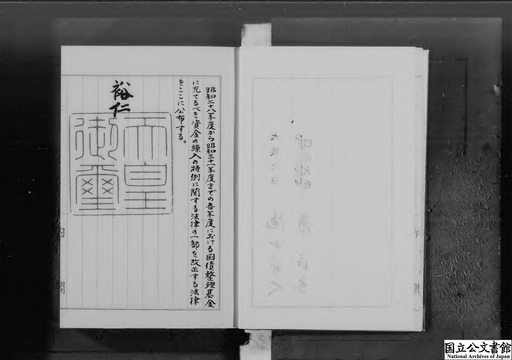 昭和二十八年度から昭和三十一年度までの各年度における国債整理基金
に充てるべき資金の繰入の特例に関する法律の一部を改正する法律
をここに公布する。
裕仁
天皇
御璽
国立公文書館
National Archives of Japan